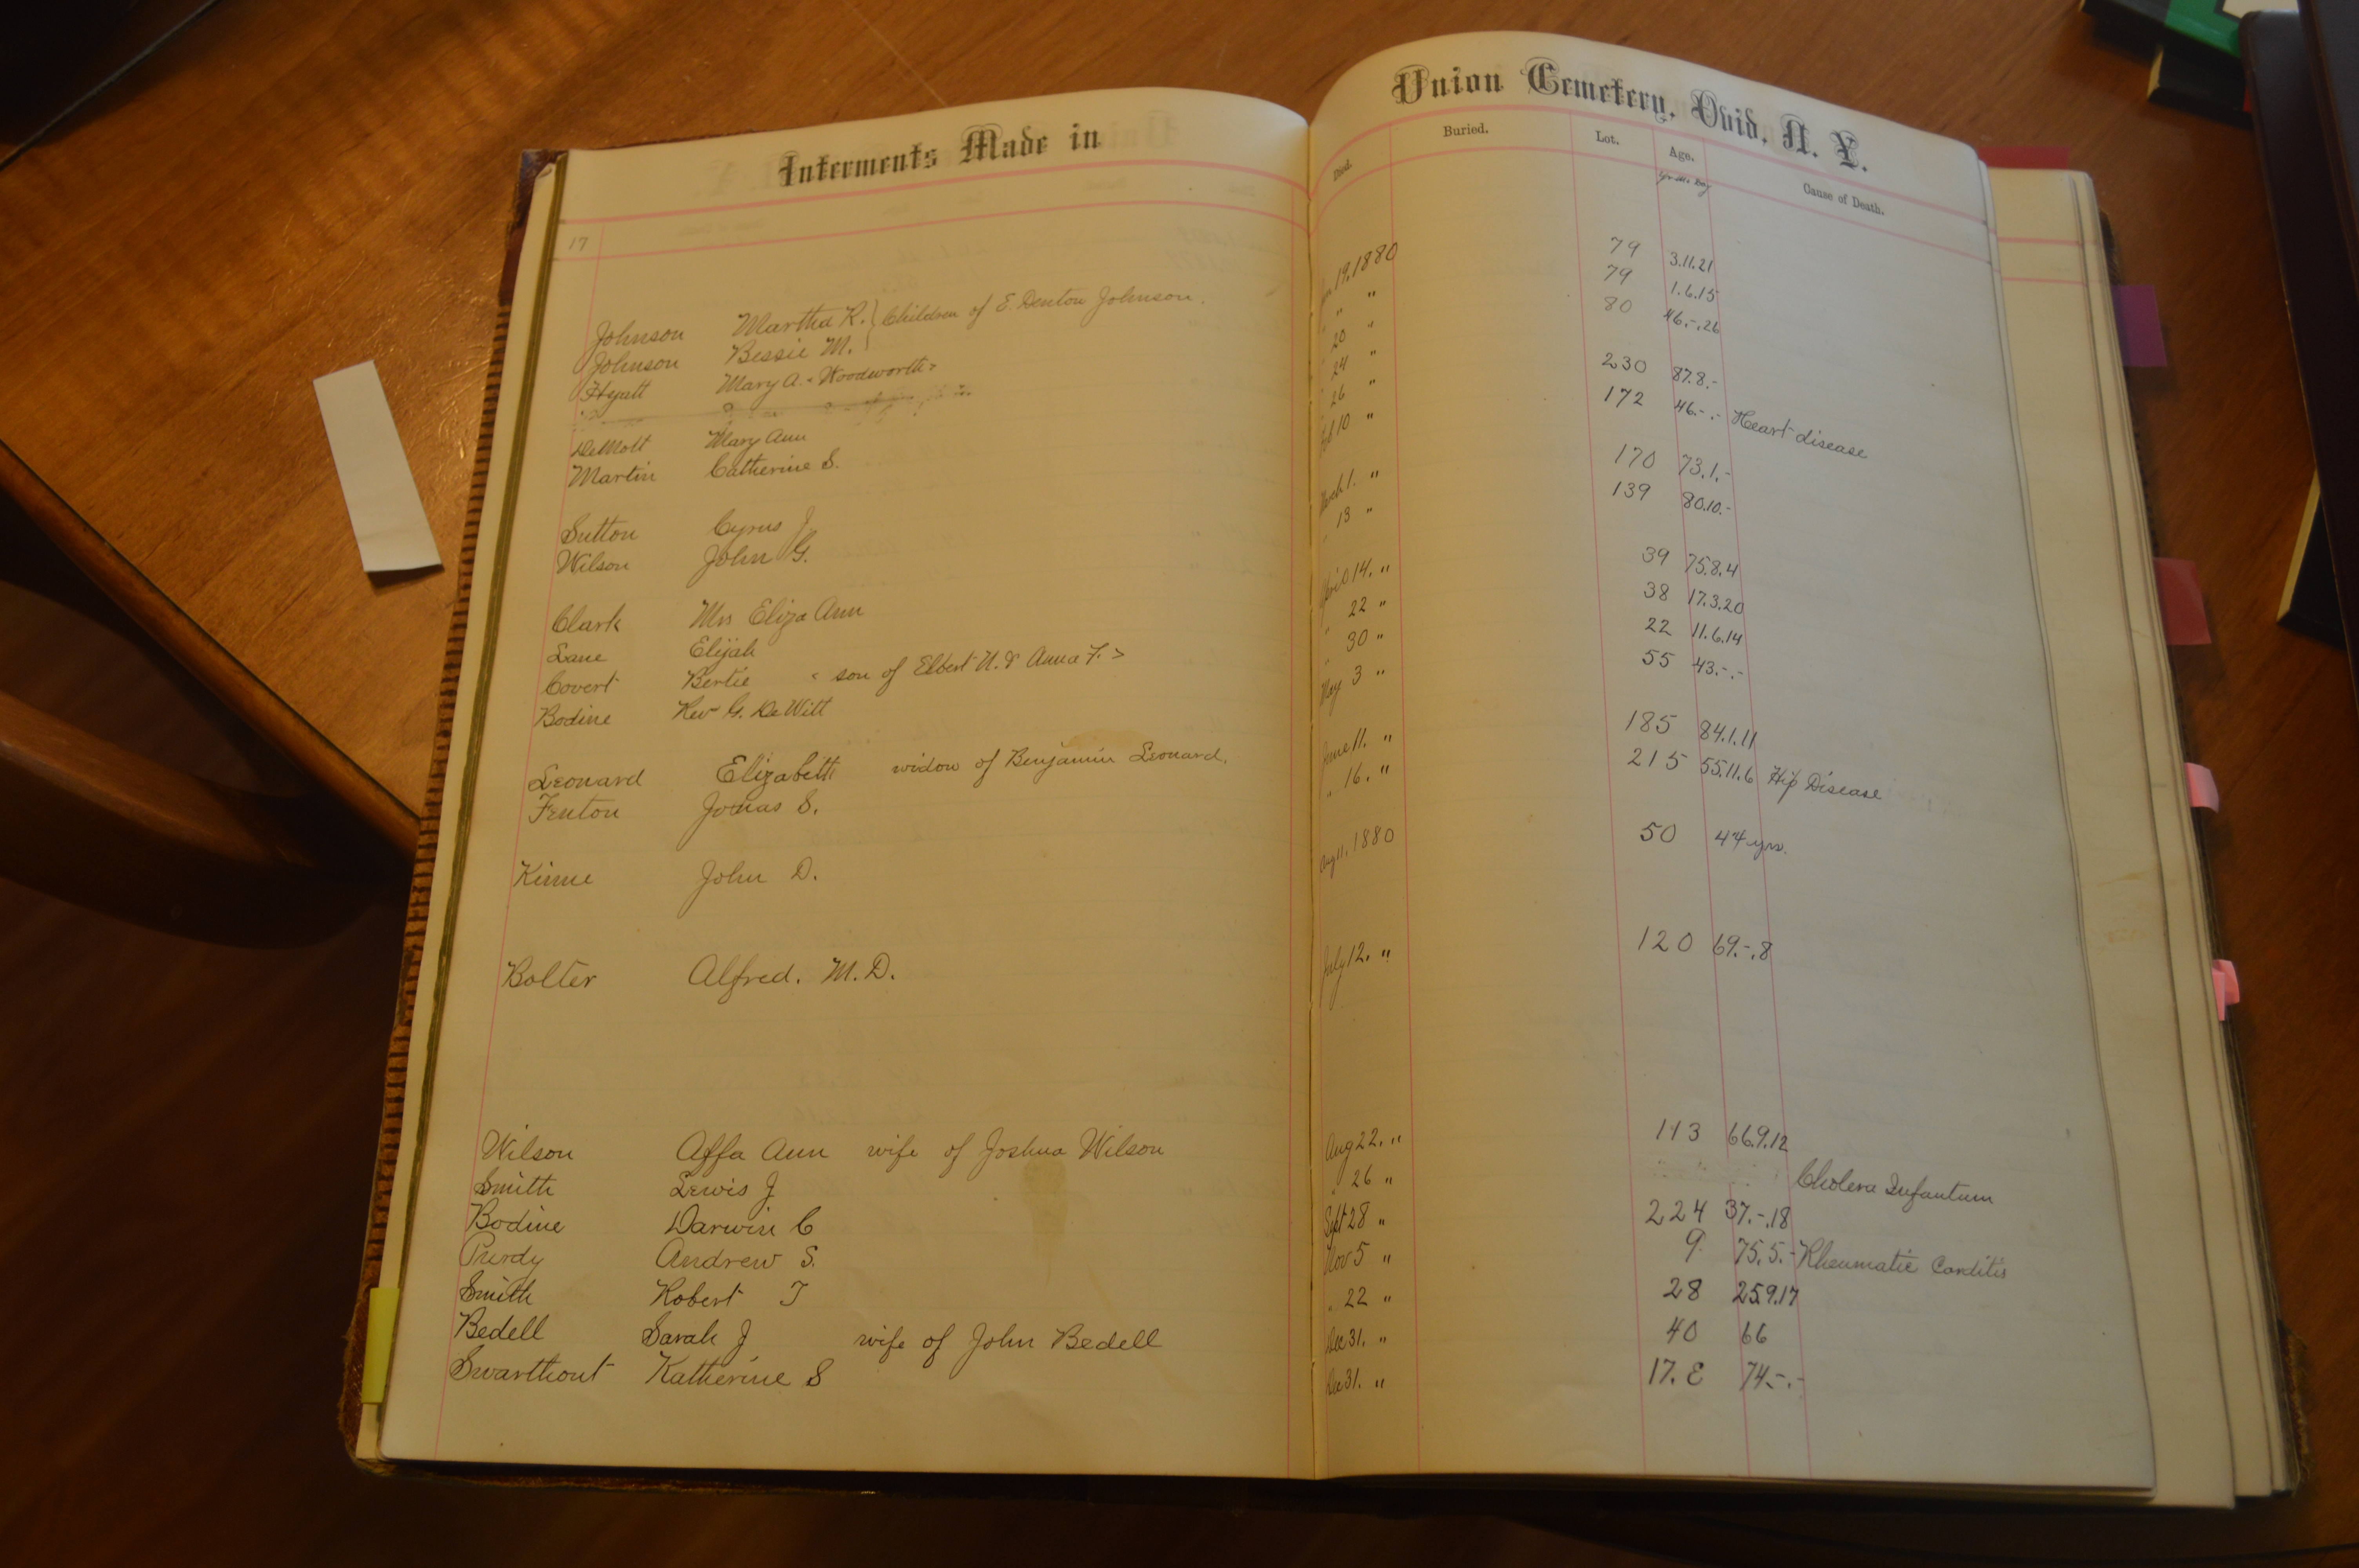 Interments Made in
17
Johnson Martha R. } Children of E. Denton Johnson.
Johnson Bessie M.
Hyatt Mary A. "Woodworth"
DeMott Mary Ann
Martin Catherine S.
Sutton Cyrus J.
Wilson John G.
Clark Mrs Eliza Ann
Lane Elijah
Covert Bertie < son of Elbert N. & Anna F. >
Bodine Rev G. DeWitt
Leonard Elizabeth widow of Benjamin Leonard.
Fenton Jonas S.
Kinne John D.
Bolter Alfred. M.D.
Wilson Affa Ann wife of Joshua Wilson
Smith Lewis J
Bodine Darwin C
Purdy Andrew S.
Smith Robert T
Bedell Sarah J wife of John Bedell
Swarthout Katherine S
Union Cemetery, Ovid, N. Y.
Died. Buried. Lot. Age. Cause of Death.
19, 1880 79 3.11.21
" " 79 1.6.15
" 20 " 80 46.-.26
" 24 "
" 26 " 230 87.8.-
Feb 10 " 172 46.-.- Heart disease
March 1. " 170 73.1.-
" 13 " 139 80.10.-
April 14. " 39 75.8.4
" 22 " 38 17.3.20
" 30 " 22 11.6.14
May 3 " 55 43.-.-
June 11. " 185 84.1.11
" 16. " 215 55.11.6 Hip Disease
Aug 11, 1880 50 44 yrs.
July 12. " 120 69.-.8
Aug 22. " 113 66.9.12
" 26 " Cholera Infantum
Sept 28 " 224 37.-.18
Nov 5 " 9. 75.5.- Rheumatic Carditis
" 22 " 28 25.9.17
Dec 31. " 40 66
Dec 31. " 17. E 74.-.-